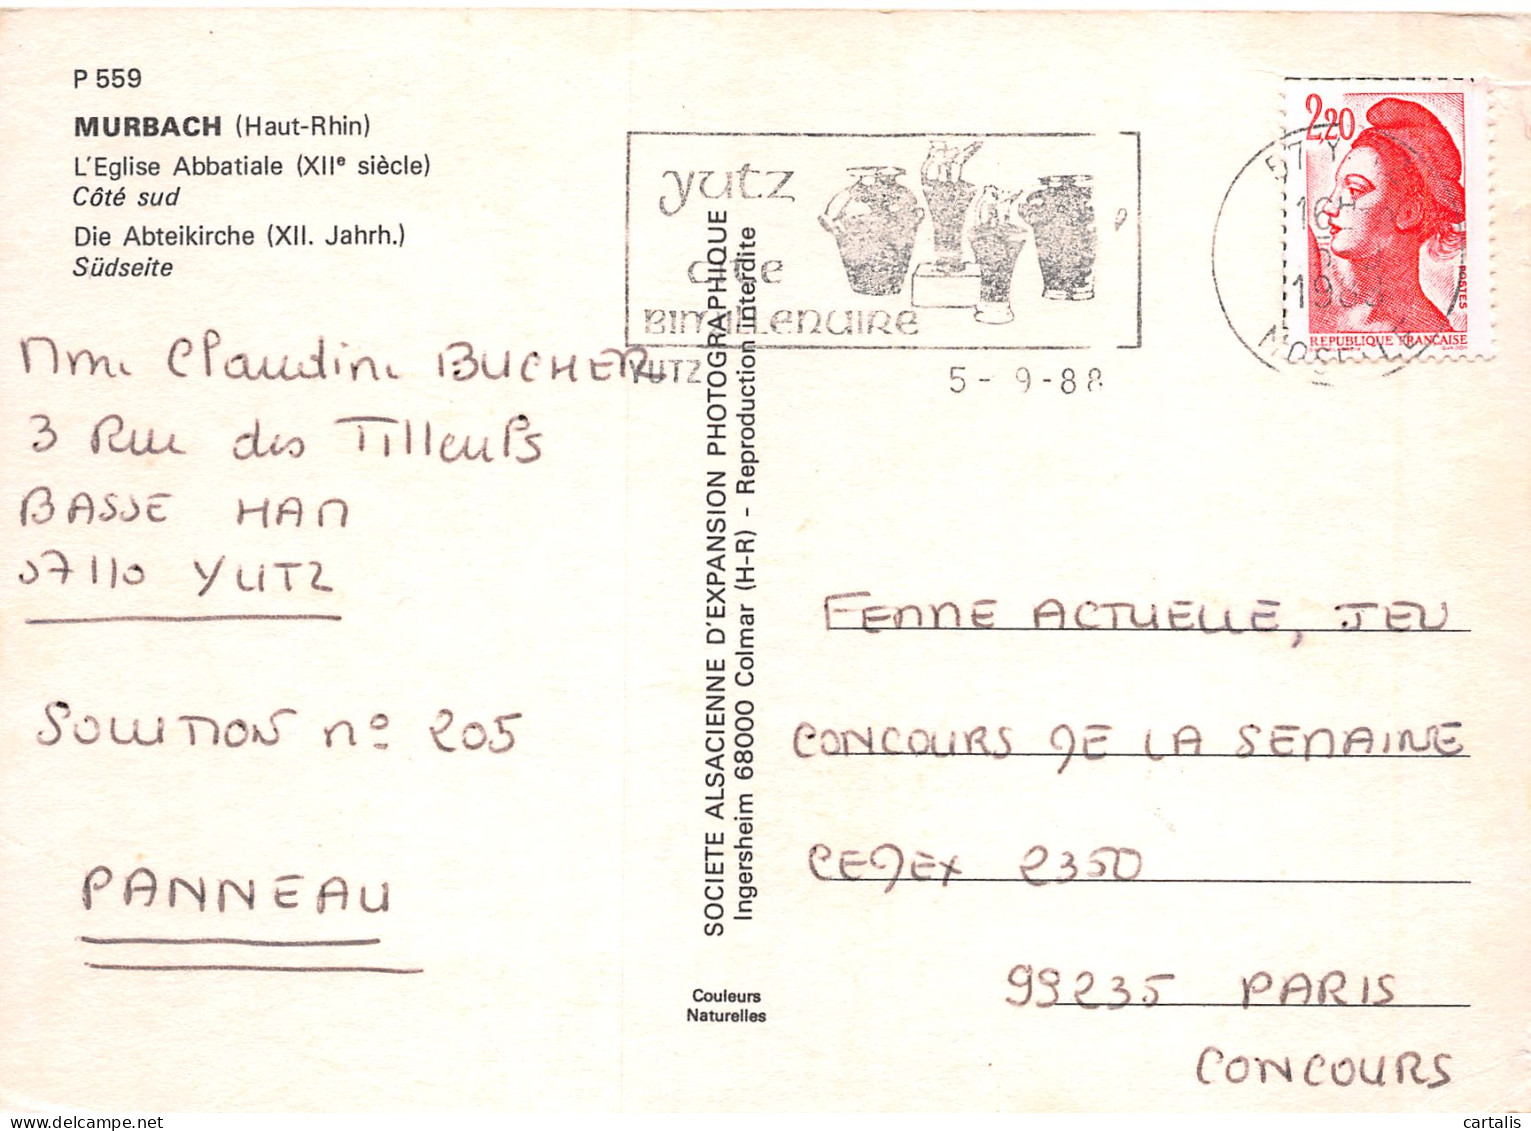 P 559
MURBACH (Haut-Rhin)
L'Eglise Abbatiale (XIIe siècle)
Côté sud
Die Abteikirche (XII. Jahrh.)
Südseite
Mme Claudine BUCHER
3 Rue des Tilleuls
BASSE HAM
57110 YUTZ
SOLUTION nº 205
PANNEAU
SOCIETE ALSACIENNE D'EXPANSION PHOTOGRAPHIQUE
Ingersheim 68000 Colmar (H-R) - Reproduction interdite
Couleurs
Naturelles
yutz
cite
BIMILLENAIRE
YUTZ
5 - 9 - 88
57
16H
MOSELLE
2,20
POSTES
REPUBLIQUE FRANCAISE
FEMME ACTUELLE, JEU
CONCOURS DE LA SEMAINE
CEDEX 2350
99235 PARIS
CONCOURS
cartalis